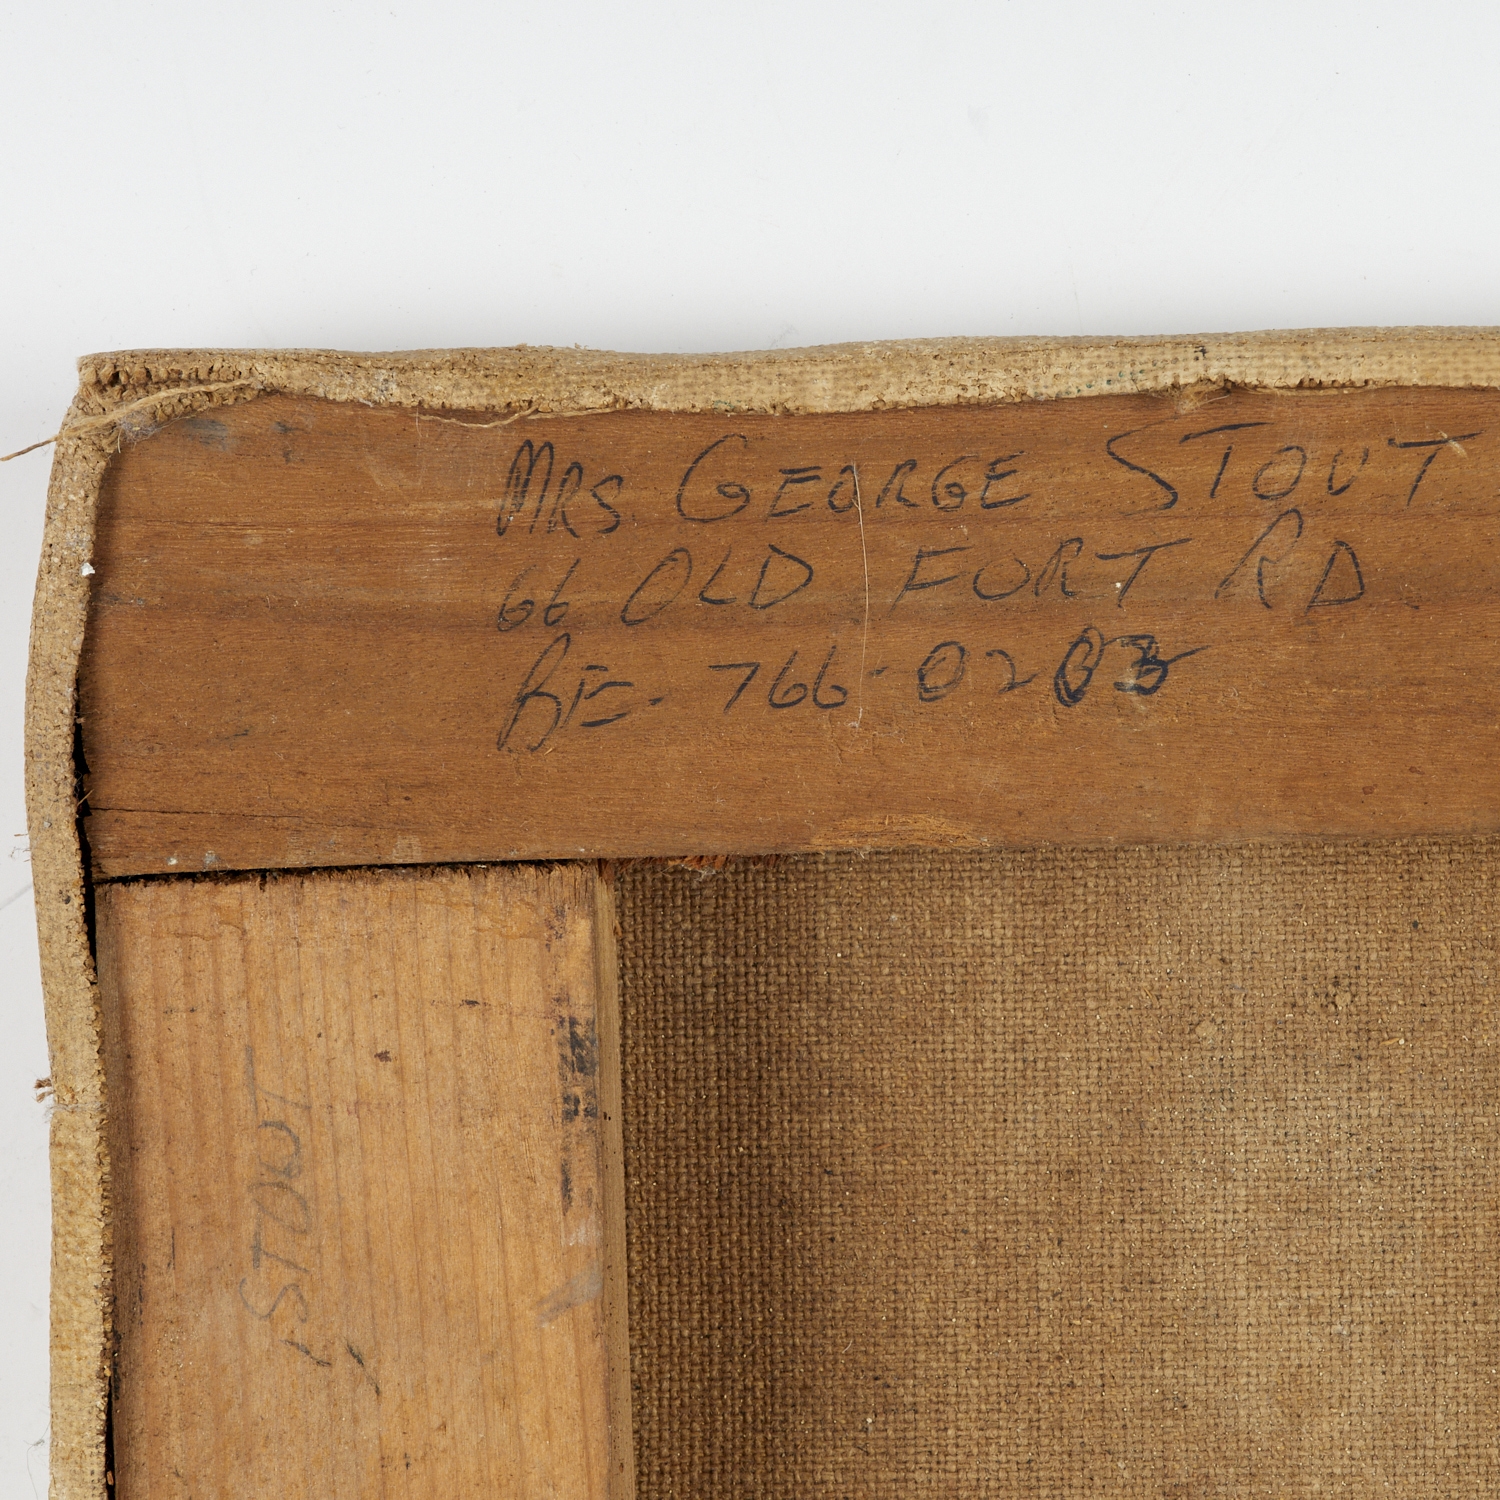 MRS GEORGE STOUT
66 OLD FORT RD
BE. 766-0203
"STOUT